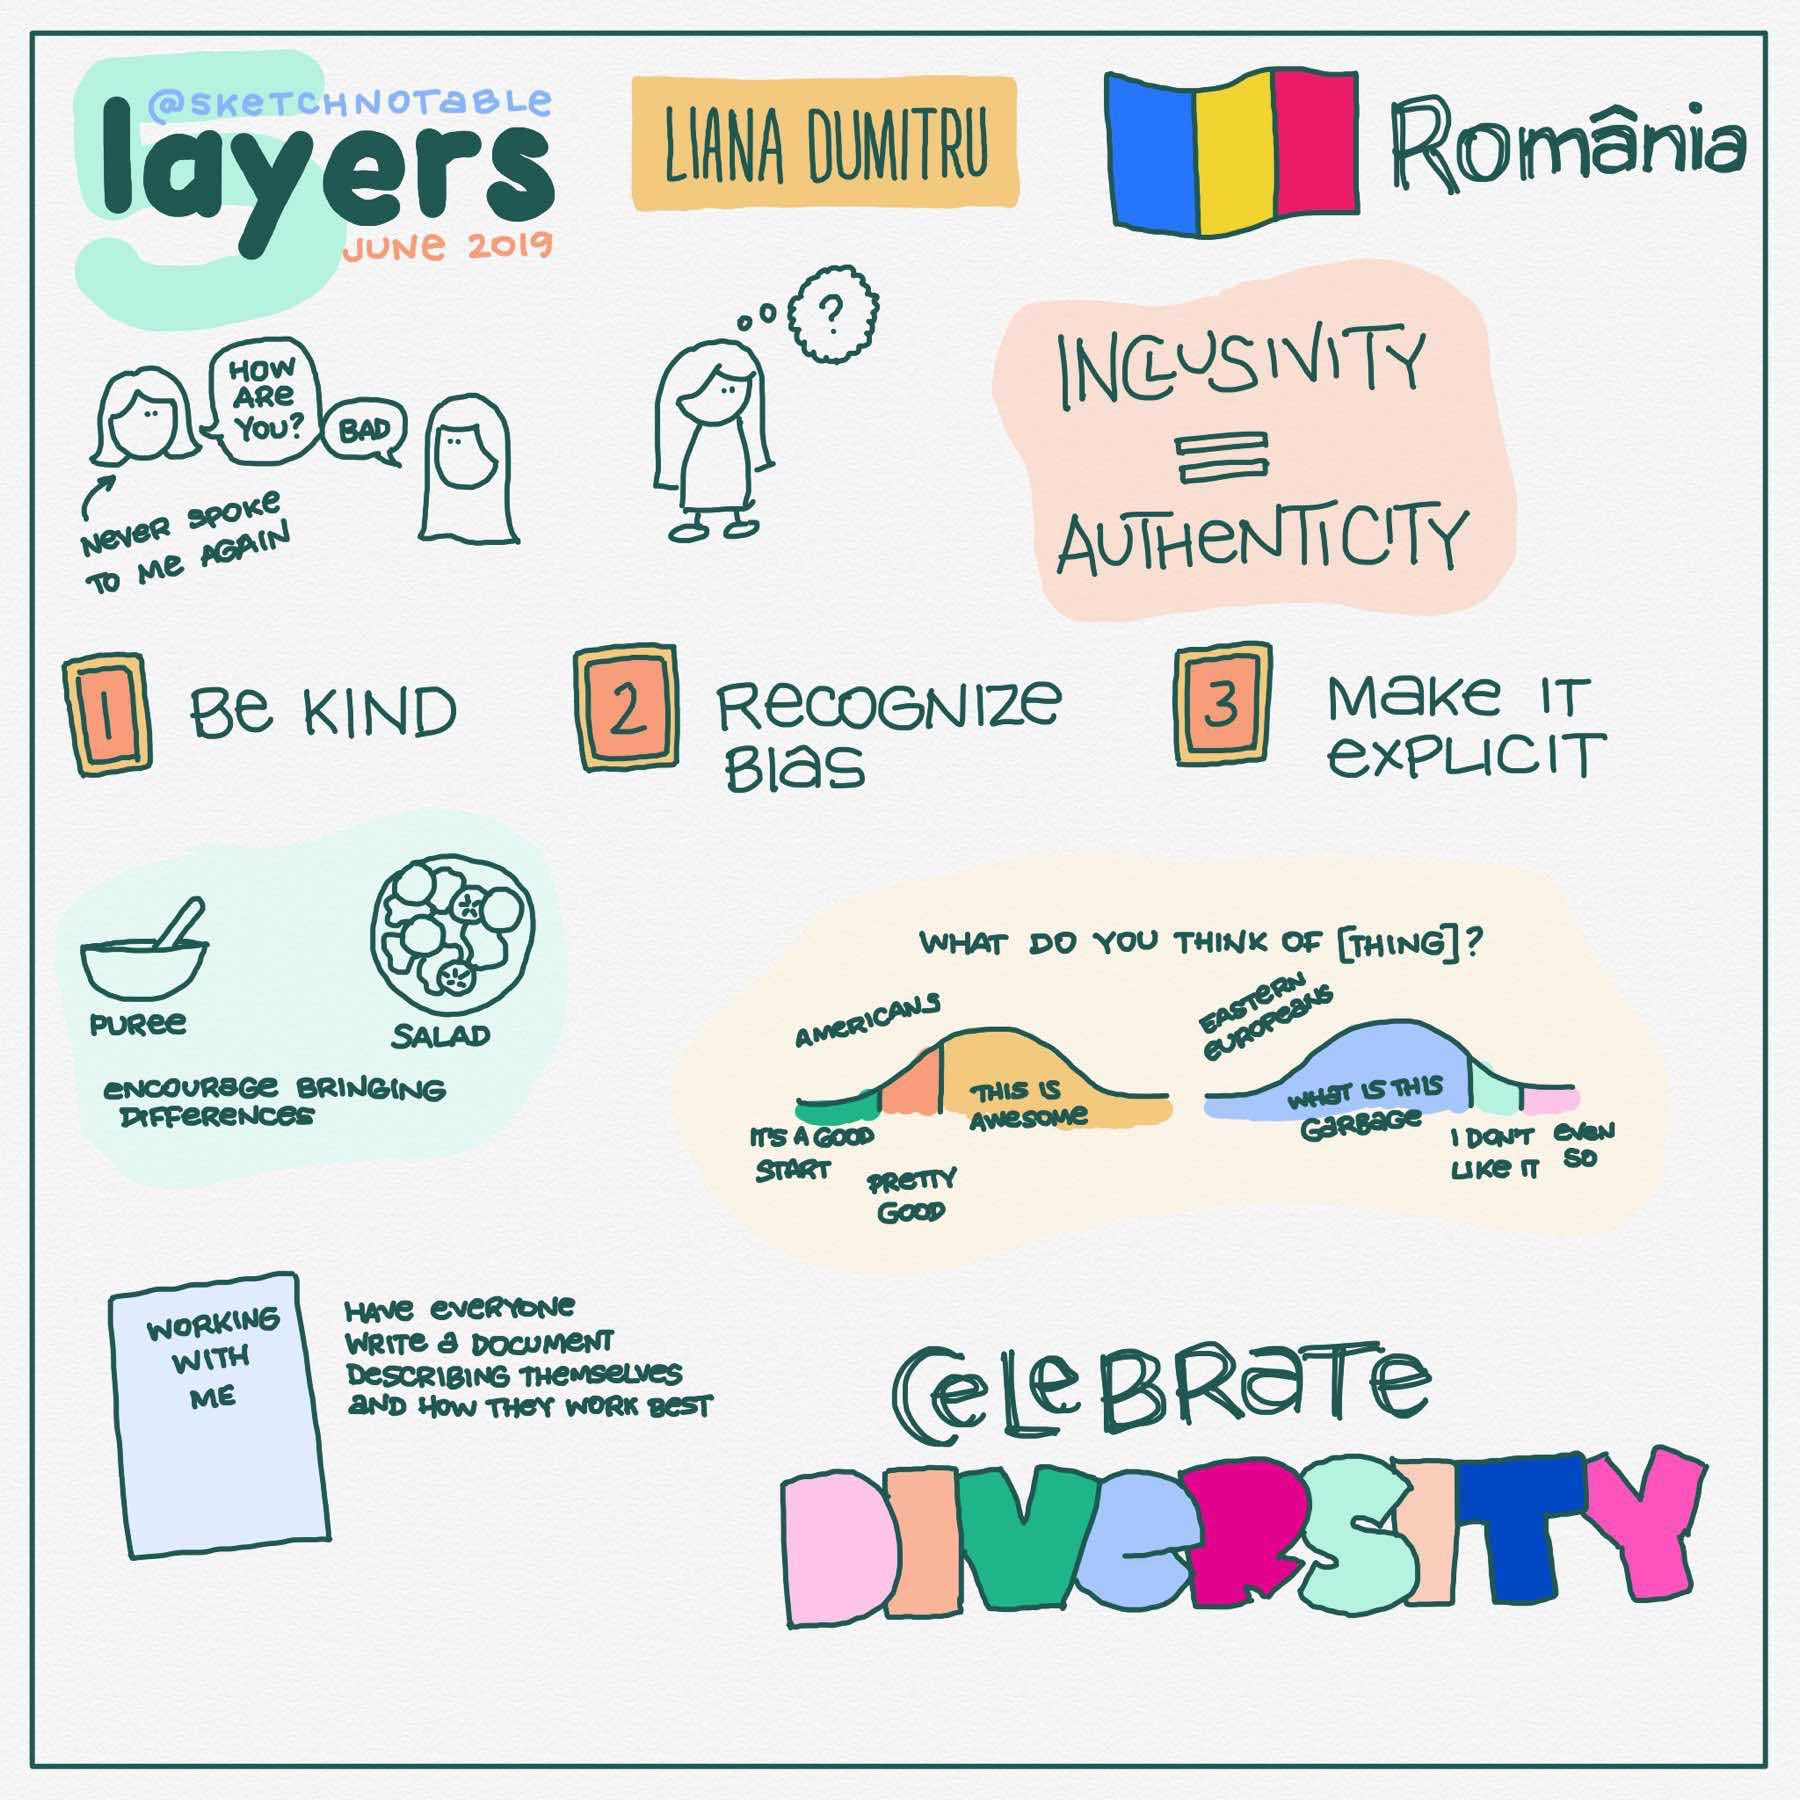 @SKETCHNOTABLE
5
layers
JUNE 2019
LIANA DUMITRU
România
HOW
ARE
YOU?
BAD
NEVER SPOKE
TO ME AGAIN
?
INCLUSIVITY
=
AUTHENTICITY
1
BE KIND
2
RECOGNIZE
BIAS
3
MAKE IT
EXPLICIT
PUREE
SALAD
ENCOURAGE BRINGING
DIFFERENCES
WHAT DO YOU THINK OF [THING]?
AMERICANS
THIS IS
AWESOME
IT'S A GOOD
START
PRETTY
GOOD
EASTERN
EUROPEANS
WHAT IS THIS
GARBAGE
I DON'T
LIKE IT
EVEN
SO
WORKING
WITH
ME
HAVE EVERYONE
WRITE A DOCUMENT
DESCRIBING THEMSELVES
AND HOW THEY WORK BEST
CELEBRATE
DIVERSITY